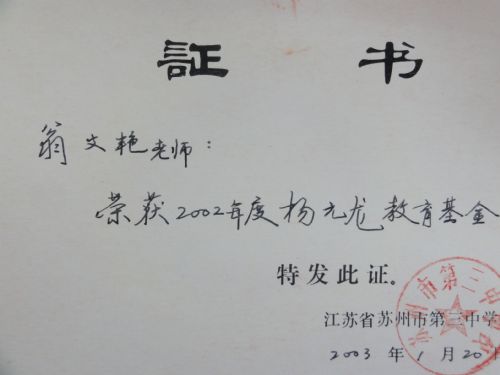 証 书
翁文艳老师：
荣获2002年度杨元龙教育基金
特发此证。
江苏省苏州市第三中学
2003 年 1 月 20